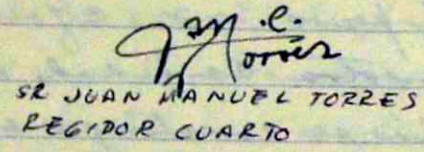 J M.C.
Torres
SR JUAN MANUEL TORRES
REGIDOR CUARTO